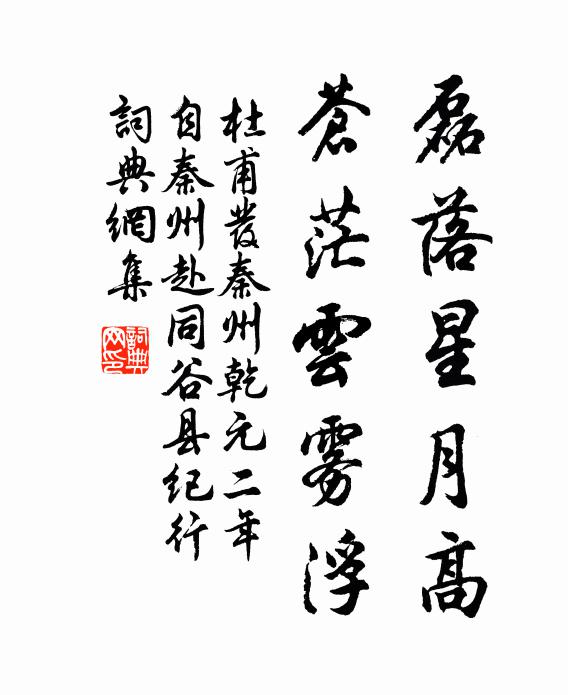 磊落星月高
蒼茫雲霧浮
杜甫發秦州乾元二年
自秦州赴同谷县纪行
詞典網集
詞典网印